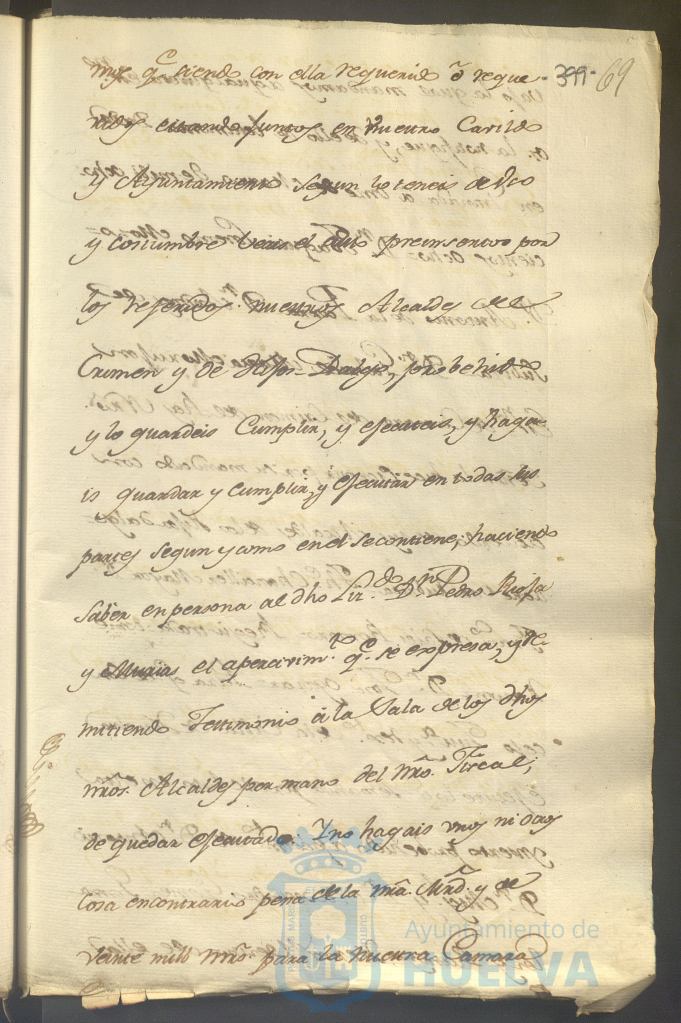 mos q.e siendo con ella requerido ó reque-
ridos estando juntos en vuestro Cavildo
y Ayuntamiento segun lo teneis de uso
y costumbre veais el auto preinserto por
los referidos nuestros Alcaldes del
Crimen y de Hijos-Dalgo, probehido
y lo guardeis Cumplir, y executeis, y haga-
is guardar y Cumplir, y executar en todas sus
partes segun y como en el se contiene, haciendo
saver en persona al dho Liz.do D.n Pedro Rioja
y Murias el apercivim.to q.e se expresa, y re-
mitiendo Testimonio á la Sala de los dhos
nros. Alcaldes por mano del nro. Fiscal,
de quedar executado. Y no hagais unos ni otros
cosa en contrario pena de la nra. Mrd. y de
veinte mill mrs. para la nuestra Camara
399- 69
Ayuntamiento de
HUELVA